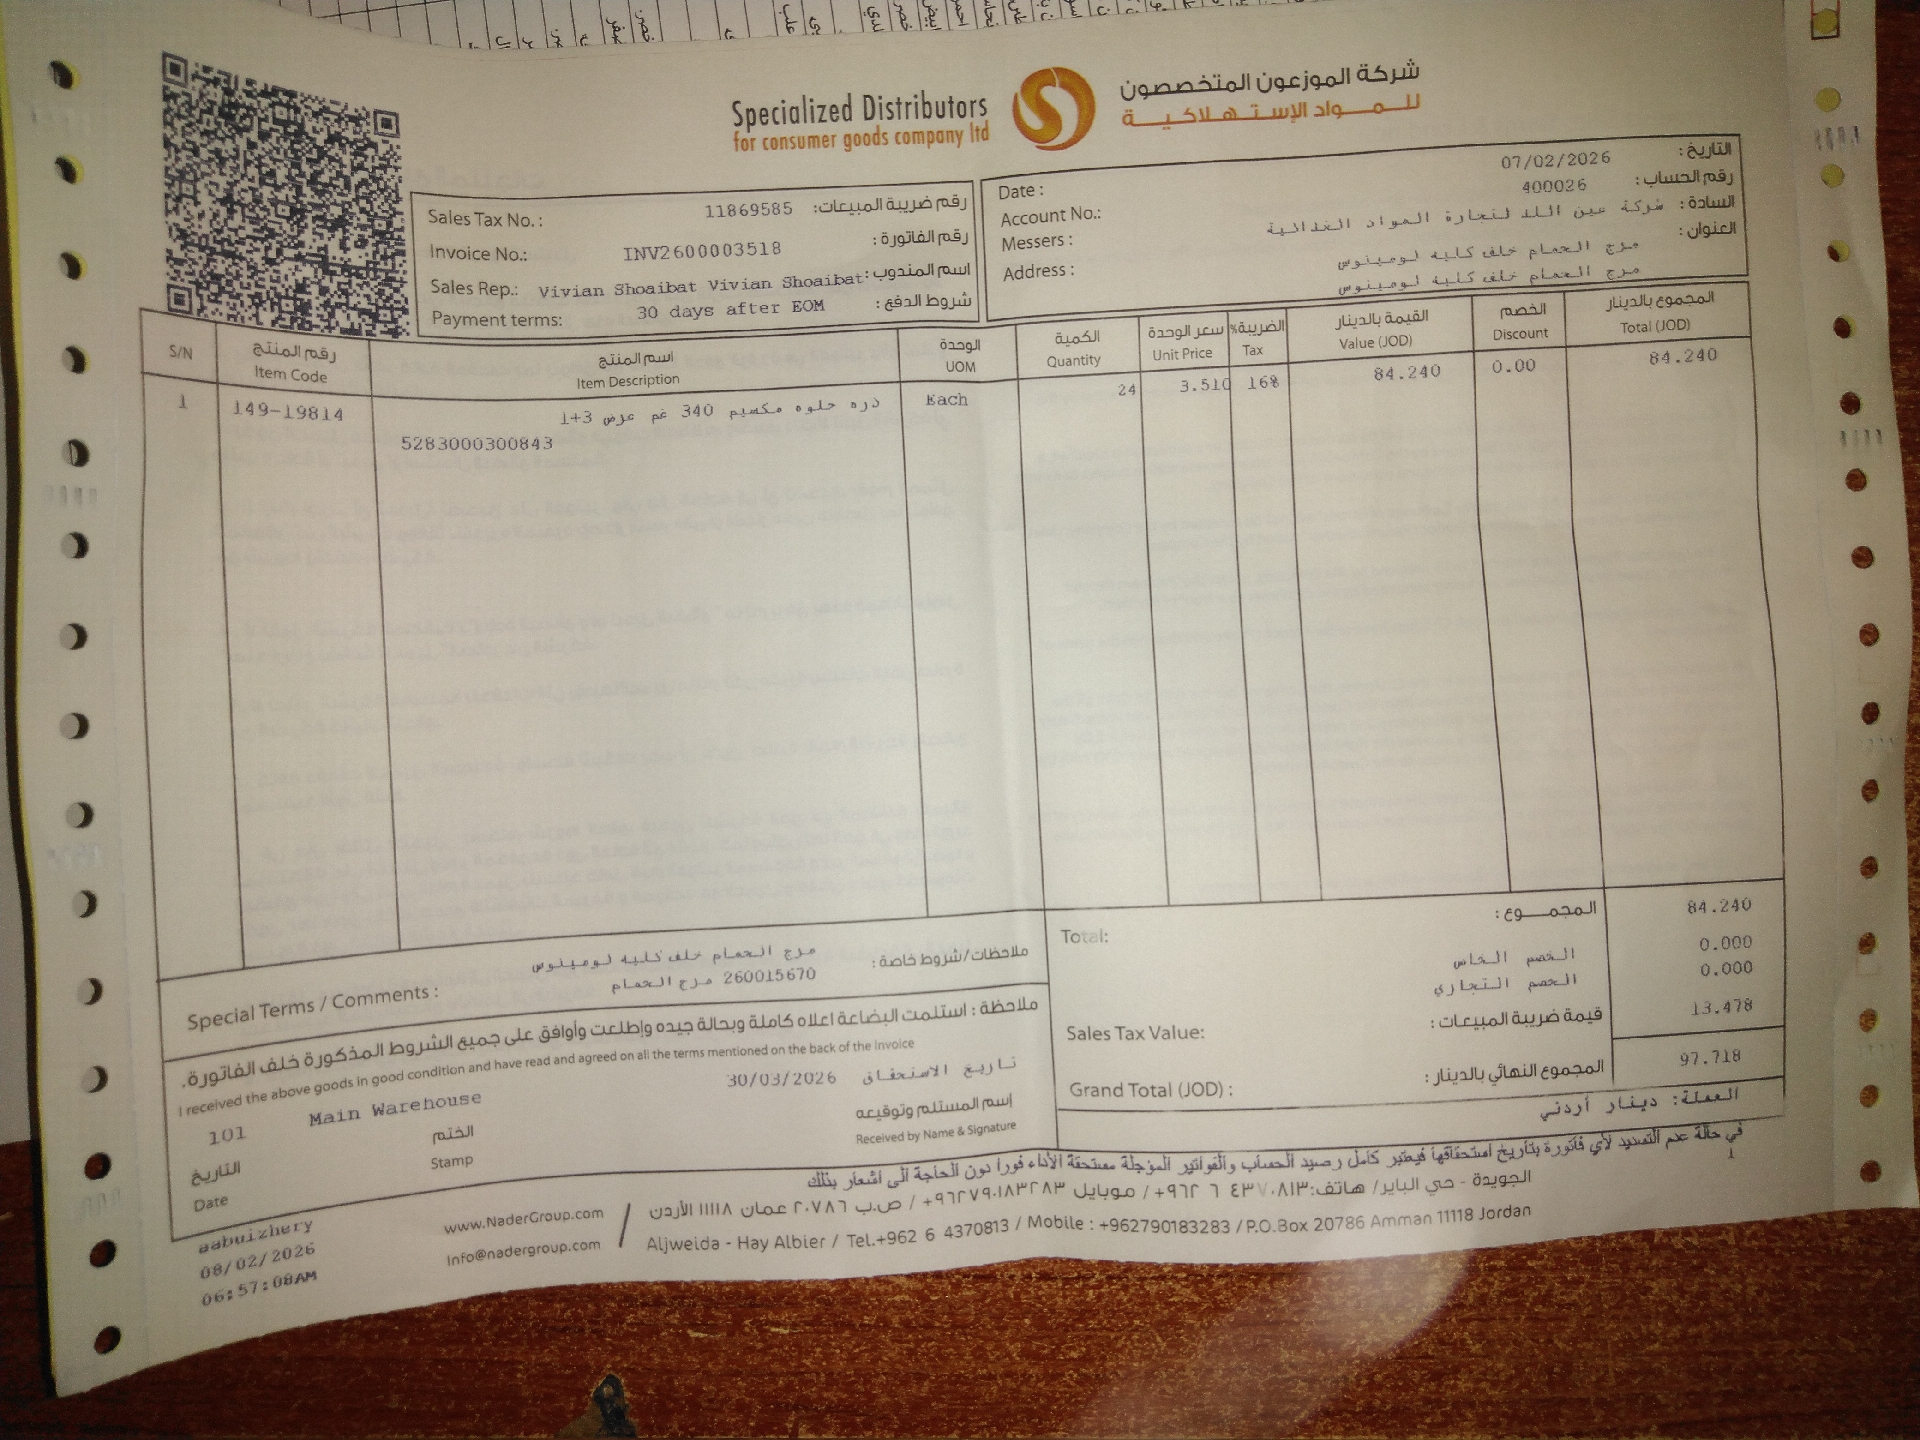 Specialized Distributors
for consumer goods company ltd
شركة الموزعون المتخصصون
للمواد الإستهلاكية
Sales Tax No. : 11869585 رقم ضريبة المبيعات:
Invoice No.: INV2600003518 رقم الفاتورة:
Sales Rep.: Vivian Shoaibat Vivian Shoaibat اسم المندوب:
Payment terms: 30 days after EOM شروط الدفع:
Date : 07/02/2026 التاريخ:
Account No.: 400026 رقم الحساب:
Messers : شركة عين اللد لتجارة المواد الغذائية السادة:
Address : مرج الحمام خلف كلية لومينوس العنوان:
مرج الحمام خلف كلية لومينوس
S/N رقم المنتج اسم المنتج الوحدة الكمية سعر الوحدة الضريبة% القيمة بالدينار الخصم المجموع بالدينار
Item Code Item Description UOM Quantity Unit Price Tax Value (JOD) Discount Total (JOD)
1 149-19814 ذره حلوه مكسيم 340 غم عرض 3+1 Each 24 3.510 16% 84.240 0.00 84.240
5283000300843
Total: المجموع: 84.240
الخصم الخاص 0.000
الخصم التجاري 0.000
Sales Tax Value: قيمة ضريبة المبيعات: 13.478
Grand Total (JOD) : المجموع النهائي بالدينار: 97.718
العملة: دينار أردني
Special Terms / Comments : مرج الحمام خلف كلية لومينوس ملاحظات/شروط خاصة:
260015670 مرج الحمام
ملاحظة : استلمت البضاعة اعلاه كاملة وبحالة جيده وإطلعت وأوافق على جميع الشروط المذكورة خلف الفاتورة.
I received the above goods in good condition and have read and agreed on all the terms mentioned on the back of the invoice
تاريخ الاستحقاق 30/03/2026
101 Main Warehouse
إسم المستلم وتوقيعه
Received by Name & Signature
الختم
Stamp
التاريخ
Date
في حالة عدم التسديد لأي فاتورة بتاريخ استحقاقها فيعتبر كامل رصيد الحساب والفواتير المؤجلة مستحقة الأداء فورا دون الحاجة الى اشعار بذلك
1
الجويدة - حي الباير/ هاتف: ٤٣٧٠٨١٣ ٦ ٩٦٢+ / موبايل ٩٦٢٧٩٠١٨٣٢٨٣+ / ص.ب ٢٠٧٨٦ عمان ١١١١٨ الأردن
Aljweida - Hay Albier / Tel.+962 6 4370813 / Mobile : +962790183283 / P.O.Box 20786 Amman 11118 Jordan
www.NaderGroup.com
Info@nadergroup.com
aabuizhery
08/02/2026
06:57:08AM